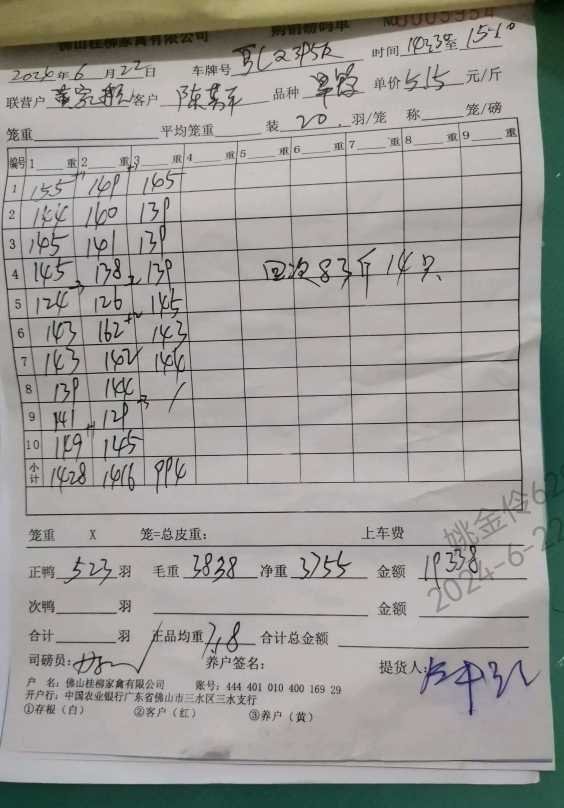 佛山桂柳家禽有限公司 购销磅码单 No 0003934
2024年6月22日 车牌号 时间 1433至15:10
联营户 客户 陈其平 品种 单价5.15元/斤
笼重 平均笼重 装 20 羽/笼 称 笼/磅
编号 1 重 2 重 3 重 4 重 5 重 6 重 7 重 8 重 9 重
1 155 149 145
2 144 140 139
3 145 141 139
4 145 138 139 回次83斤14只
5 124 126 145
6 143 162 143
7 143 142 144
8 139 144
9 141 129
10 149 145
小计 1428 1416 994
笼重 X 笼=总皮重: 上车费
正鸭 523 羽 毛重 3838 净重 3755 金额 19338
次鸭 羽 金额
合计 羽 正品均重 7.18 合计总金额
司磅员: 养户签名: 提货人:
户 名: 佛山桂柳家禽有限公司 账号: 444 401 010 400 169 29
开户行: 中国农业银行广东省佛山市三水区三水支行
①存根（白） ②客户（红） ③养户（黄）
姚金伶628
2024-6-22